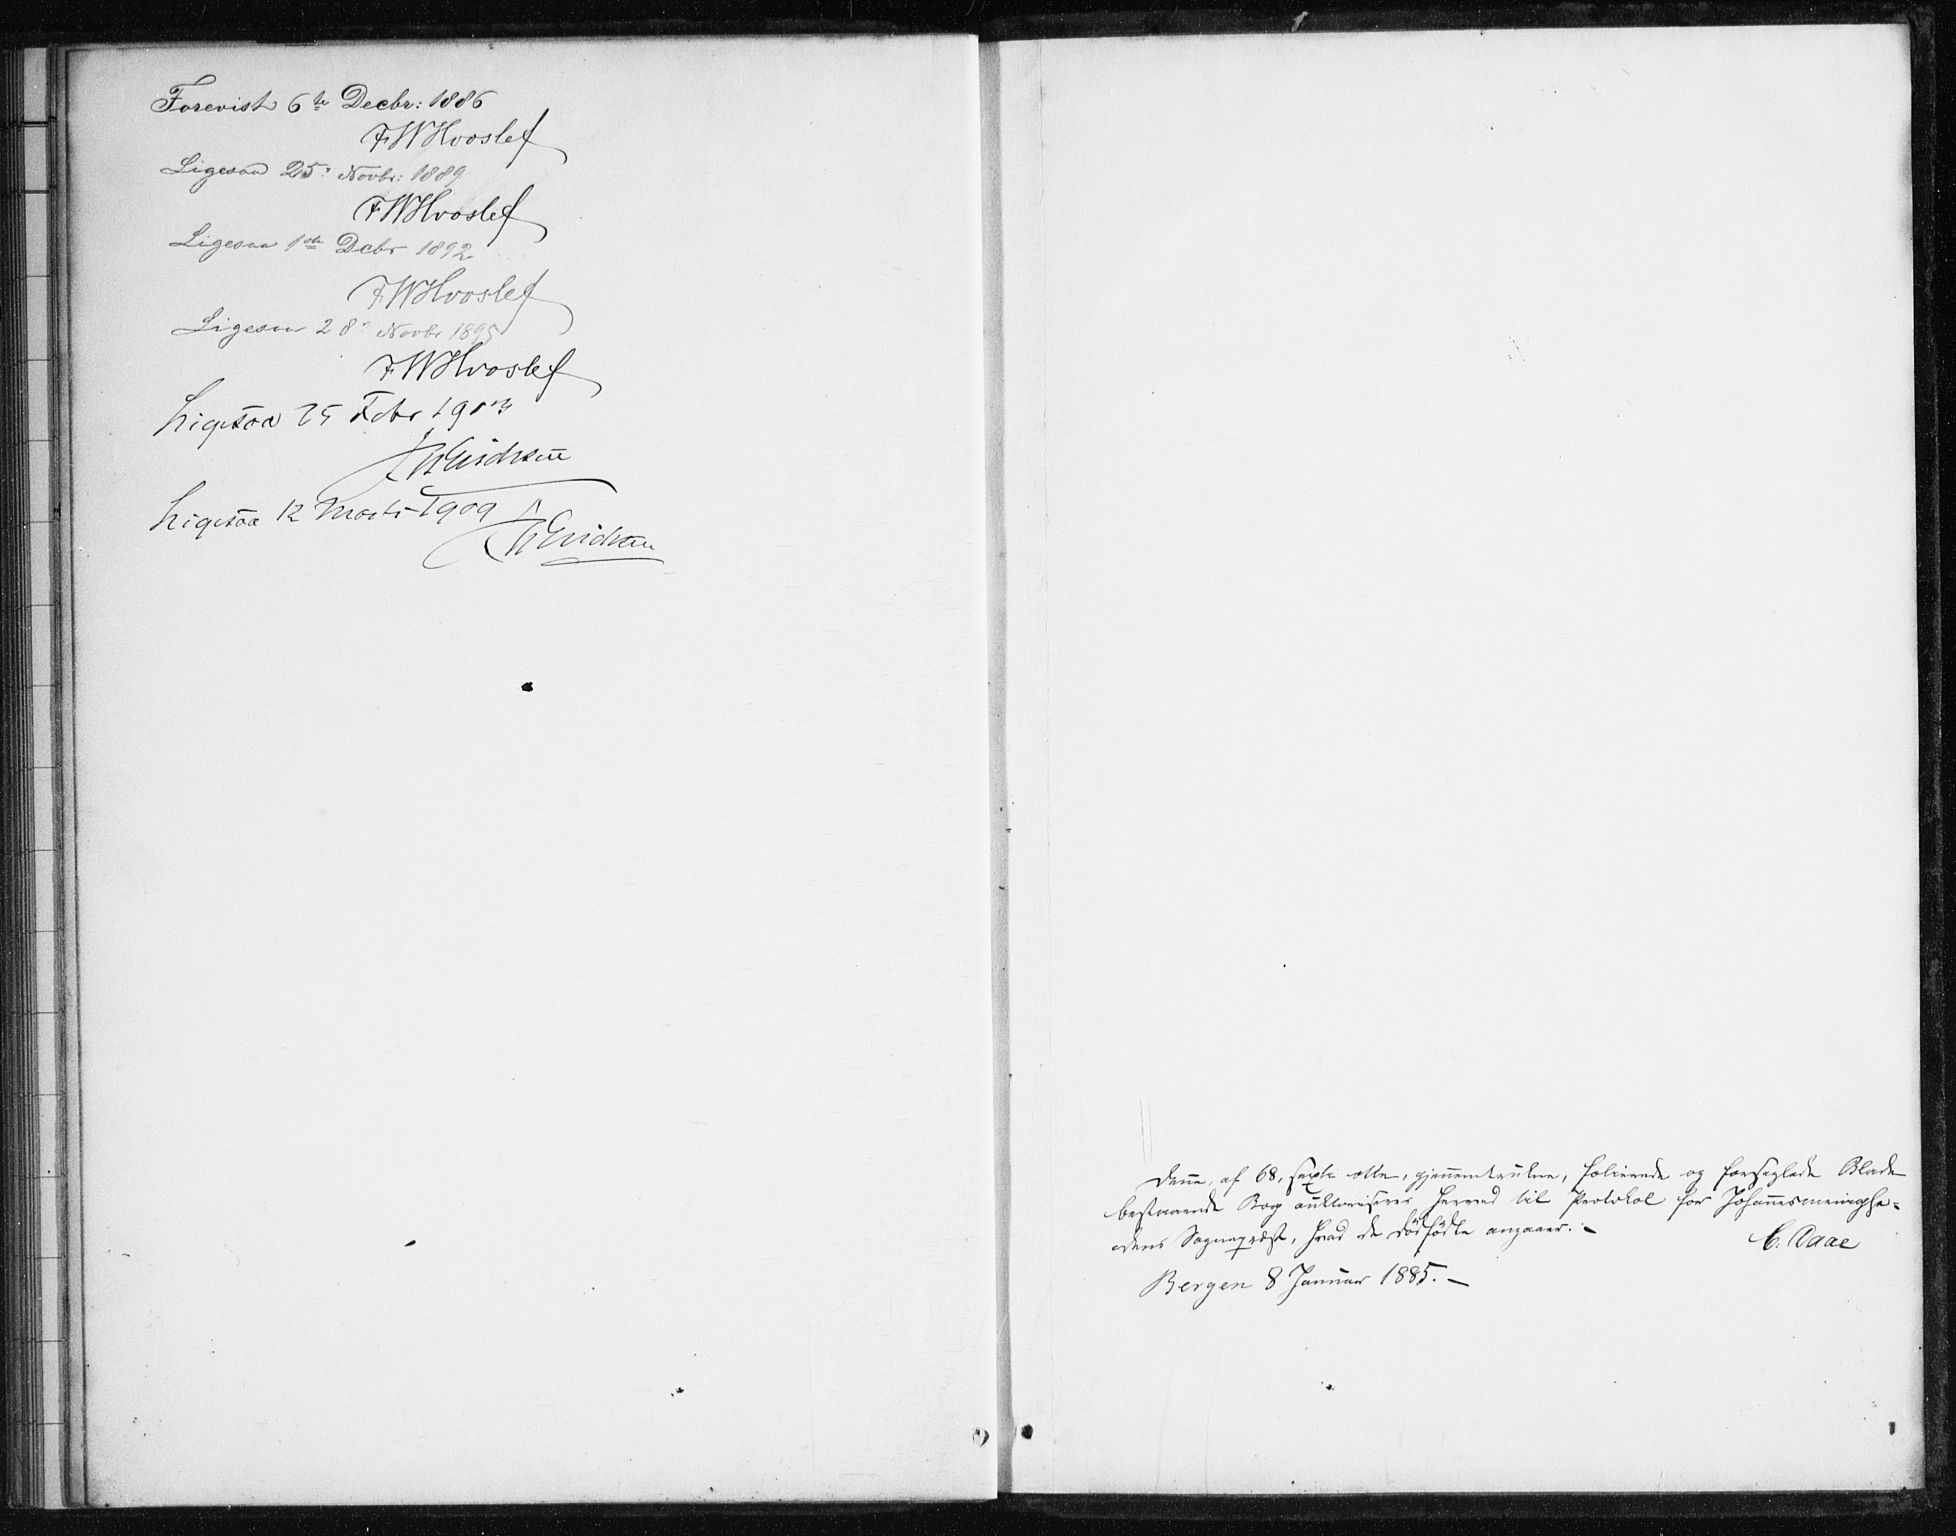 Forevist 6te Decbr: 1886
FWHvoslef
Ligesaa 25: Novbr: 1889.
FWHvoslef
Ligesaa 1ste Dcbr 1892
FWHvoslef
Ligesaa 28: Novbr 1895
FWHvoslef
Ligesaa 25 Febr 1903
Erichsen
Ligesaa 12 Marts 1909
Erichsen
Denne, af 68, sexti otte, gjennemtrukne, folierede og forseglede Blade
bestaaende Bog auktoriseres herved til Protokol for Johannesmenighe-
dens Sognepræst, hvad de dødfødte angaaer. —
C. Daae
Bergen 8 Januar 1885. —